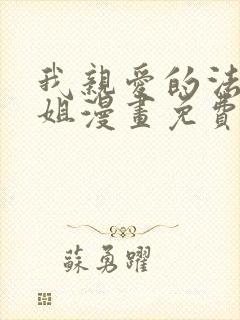 我親愛的法
姐漫畫免費
蘇勇躍